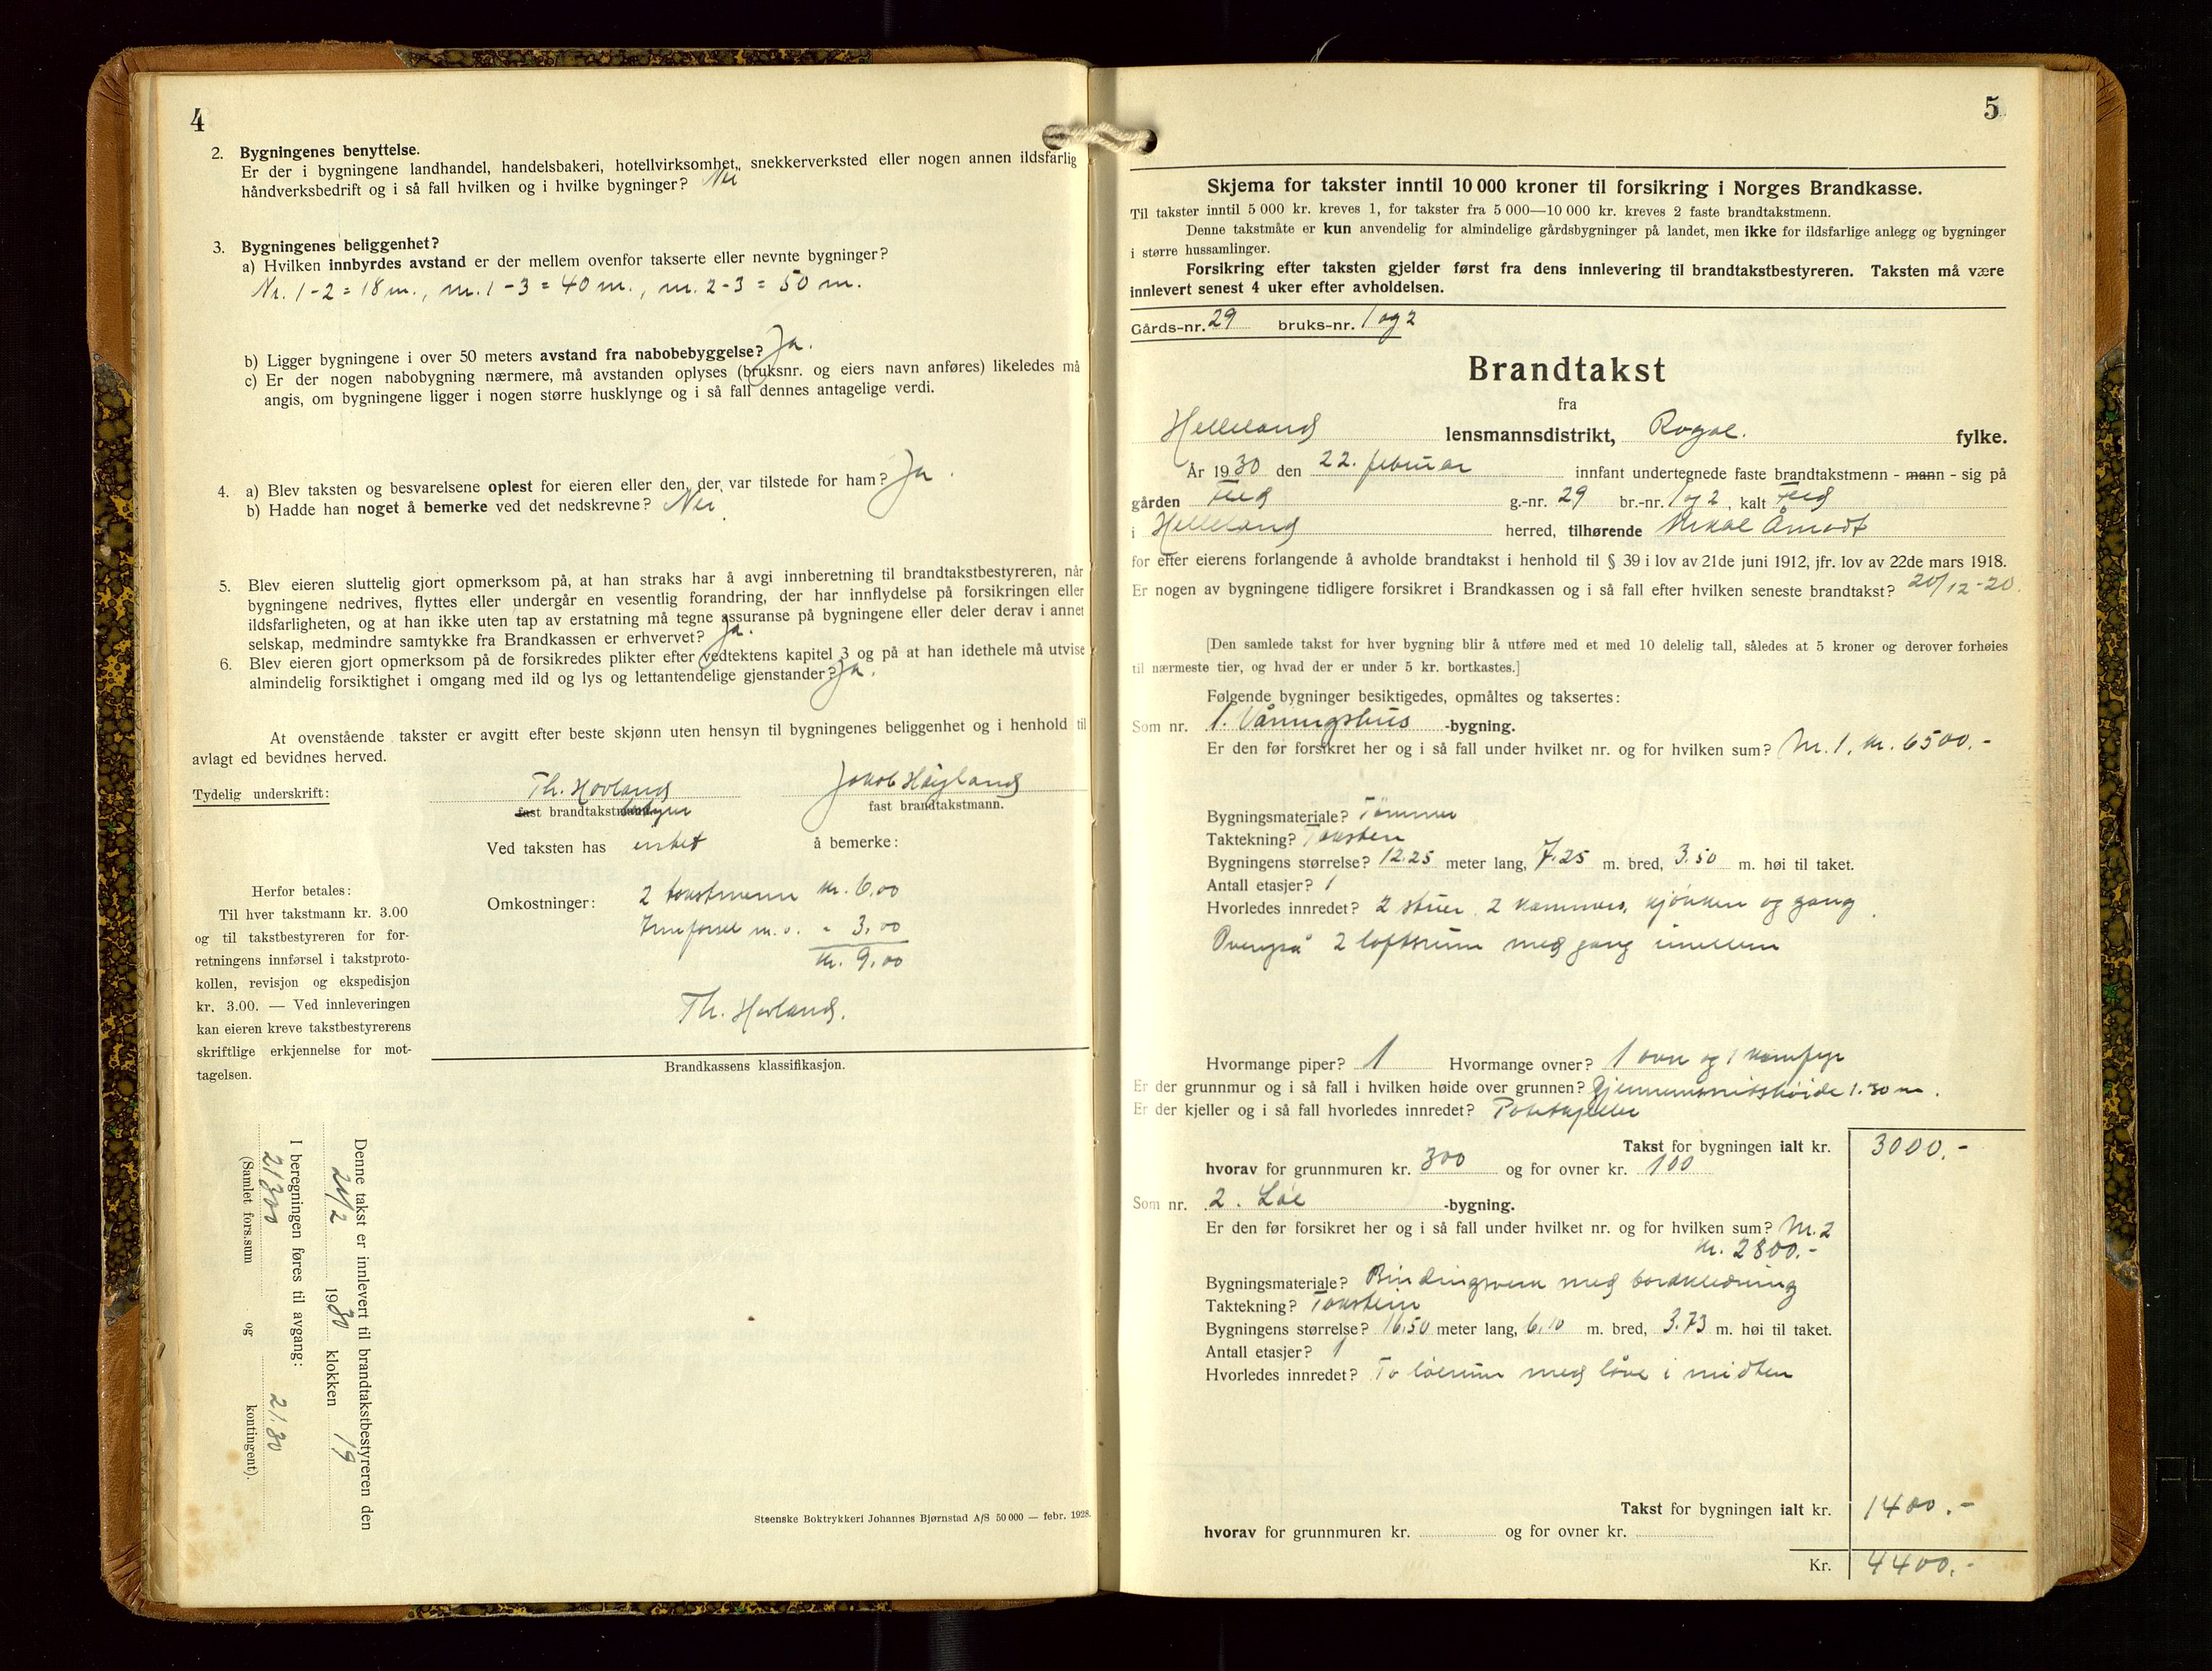 4
2. Bygningenes benyttelse.
Er der i bygningene landhandel, handelsbakeri, hotellvirksomhet, snekkerverksted eller nogen annen ildsfarlig
håndverksbedrift og i så fall hvilken og i hvilke bygninger? Nei
3. Bygningenes beliggenhet?
a) Hvilken innbyrdes avstand er der mellem ovenfor takserte eller nevnte bygninger?
Nr. 1-2 = 18 m., nr. 1-3 = 40 m., nr. 2-3 = 50 m.
b) Ligger bygningene i over 50 meters avstand fra nabobebyggelse? Ja.
c) Er der nogen nabobygning nærmere, må avstanden oplyses (bruksnr. og eiers navn anføres) likeledes må
angis, om bygningene ligger i nogen større husklynge og i så fall dennes antagelige verdi.
4. a) Blev taksten og besvarelsene oplest for eieren eller den, der var tilstede for ham? Ja.
b) Hadde han noget å bemerke ved det nedskrevne? Nei.
5. Blev eieren sluttelig gjort opmerksom på, at han straks har å avgi innberetning til brandtakstbestyreren, når
bygningene nedrives, flyttes eller undergår en vesentlig forandring, der har innflydelse på forsikringen eller
ildsfarligheten, og at han ikke uten tap av erstatning må tegne assuranse på bygningene eller deler derav i annet
selskap, medmindre samtykke fra Brandkassen er erhvervet? Ja.
6. Blev eieren gjort opmerksom på de forsikredes plikter efter vedtektens kapitel 3 og på at han idethele må utvise
almindelig forsiktighet i omgang med ild og lys og lettantendelige gjenstander? Ja.
At ovenstående takster er avgitt efter beste skjønn uten hensyn til bygningenes beliggenhet og i henhold til
avlagt ed bevidnes herved.
Tydelig underskrift: Th. Hovland Jakob Høyland
fast brandtakst fast brandtakstmann.
Ved taksten has intet å bemerke:
Omkostninger: 2 takstmenn kr. 6,00
Innførsel m. v. " 3,00
kr. 9,00
Th. Hovland.
Herfor betales:
Til hver takstmann kr. 3.00
og til takstbestyreren for for-
retningens innførsel i takstproto-
kollen, revisjon og ekspedisjon
kr. 3.00. — Ved innleveringen
kan eieren kreve takstbestyrerens
skriftlige erkjennelse for mot-
tagelsen.
Brandkassens klassifikasjon.
Denne takst er innlevert til brandtakstbestyreren den
24/2 1930 klokken 19
I beregningen føres til avgang:
21300 21.30
(Samlet fors.sum og kontingent).
Steenske Boktrykkeri Johannes Bjørnstad A/S 50 000 — febr. 1928.
5
Skjema for takster inntil 10 000 kroner til forsikring i Norges Brandkasse.
Til takster inntil 5 000 kr. kreves 1, for takster fra 5 000—10 000 kr. kreves 2 faste brandtakstmenn.
Denne takstmåte er kun anvendelig for almindelige gårdsbygninger på landet, men ikke for ildsfarlige anlegg og bygninger
i større hussamlinger.
Forsikring efter taksten gjelder først fra dens innlevering til brandtakstbestyreren. Taksten må være
innlevert senest 4 uker efter avholdelsen.
Gårds-nr. 29 bruks-nr. 1 og 2
Brandtakst
fra
Helleland lensmannsdistrikt, Rogal. fylke.
År 1930 den 22. februar innfant undertegnede faste brandtakstmenn - mann - sig på
gården g.-nr. 29 br.-nr. 1 og 2, kalt
i Helleland herred, tilhørende Mikal Åmodt
for efter eierens forlangende å avholde brandtakst i henhold til § 39 i lov av 21de juni 1912, jfr. lov av 22de mars 1918.
Er nogen av bygningene tidligere forsikret i Brandkassen og i så fall efter hvilken seneste brandtakst? 20/12-20.
[Den samlede takst for hver bygning blir å utføre med et med 10 delelig tall, således at 5 kroner og derover forhøies
til nærmeste tier, og hvad der er under 5 kr. bortkastes.]
Følgende bygninger besiktigedes, opmåltes og taksertes:
Som nr. 1. Våningshus -bygning.
Er den før forsikret her og i så fall under hvilket nr. og for hvilken sum? Nr. 1, kr. 6500.-
Bygningsmateriale? Tømmer
Taktekning? Taksten
Bygningens størrelse? 12.25 meter lang, 7.25 m. bred, 3.50 m. høi til taket.
Antall etasjer? 1
Hvorledes innredet? 2 stuer, 2 kammers, kjøkken og gang.
Ovenpå 2 loftsrum med gang imellem
Hvormange piper? 1 Hvormange ovner? 1 ovn og 1 komfyr
Er der grunnmur og i så fall i hvilken høide over grunnen? Gjennemsnitshøide 1.30 m.
Er der kjeller og i så fall hvorledes innredet? Potetkjeller
Takst for bygningen ialt kr. 3000.-
hvorav for grunnmuren kr. 300 og for ovner kr. 100
Som nr. 2. Løe -bygning.
Er den før forsikret her og i så fall under hvilket nr. og for hvilken sum? Nr. 2
kr. 2800.-
Bygningsmateriale? Bindingsverk med bordkledning
Taktekning? Takstein
Bygningens størrelse? 16,50 meter lang, 6,10 m. bred, 3.73 m. høi til taket.
Antall etasjer? 1
Hvorledes innredet? To løerum med låve i midten
Takst for bygningen ialt kr. 1400.-
hvorav for grunnmuren kr. og for ovner kr.
Kr. 4400.-